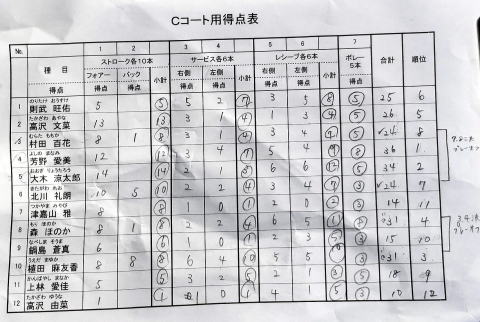 Cコート用得点表
No. 種目 1 2 3 4 5 6 7 合計 順位
ストローク各10本 サービス各6本 レシーブ各6本 ボレー5本
フォアー バック 小計 右側 左側 小計 右側 左側 小計
得点 得点 得点 得点 得点 得点 得点 得点
のりたけ おうすけ
1 則武 旺佑 5 ⑤ 5 2 ⑦ 3 5 ⑧ ⑤ 25 6
たかざわ あやな
2 高沢 文菜 13 ⑬ 3 1 ④ 1 3 ④ ⑤ 26 5
むらた ももか
3 村田 百花 8 1 3 1 ④ 3 4 ⑤ 24 8
よしの まなみ
4 芳野 愛美 12 ⑫ 3 4 ⑦ 5 4 ⑨ 36 1
おおぎ りょうたろう
5 大木 涼太郎 14 ⑭ 2 2 ④ 6 6 ⑫ 34 2
きたがわ れお
6 北川 礼朗 10 5 2 2 ④ 3 4 ⑦ ③ 24 7
つかやま みやび
7 津嘉山 雅 8 ⑧ 1 0 ① 1 ② ③ 14 11
もり まのか
8 森 ほのか 8 1 2 2 ④ 6 5 31 4
なべしま そうま
9 鍋島 蒼真 6 ⑥ 1 0 ① 15 10
うえだ まゆか
10 植田 麻友香 8 8 6 4 ⑩ 5 5 31 3
かんばやし まなか
11 上林 愛佳 5 ⑤ 3 2 ⑤ 2 1 ③ 18 9
たかざわ ゆうな
12 高沢 由菜 1 ① 0 4 1 ⑤ ③ 10 12
プレーオフ
プレーオフ